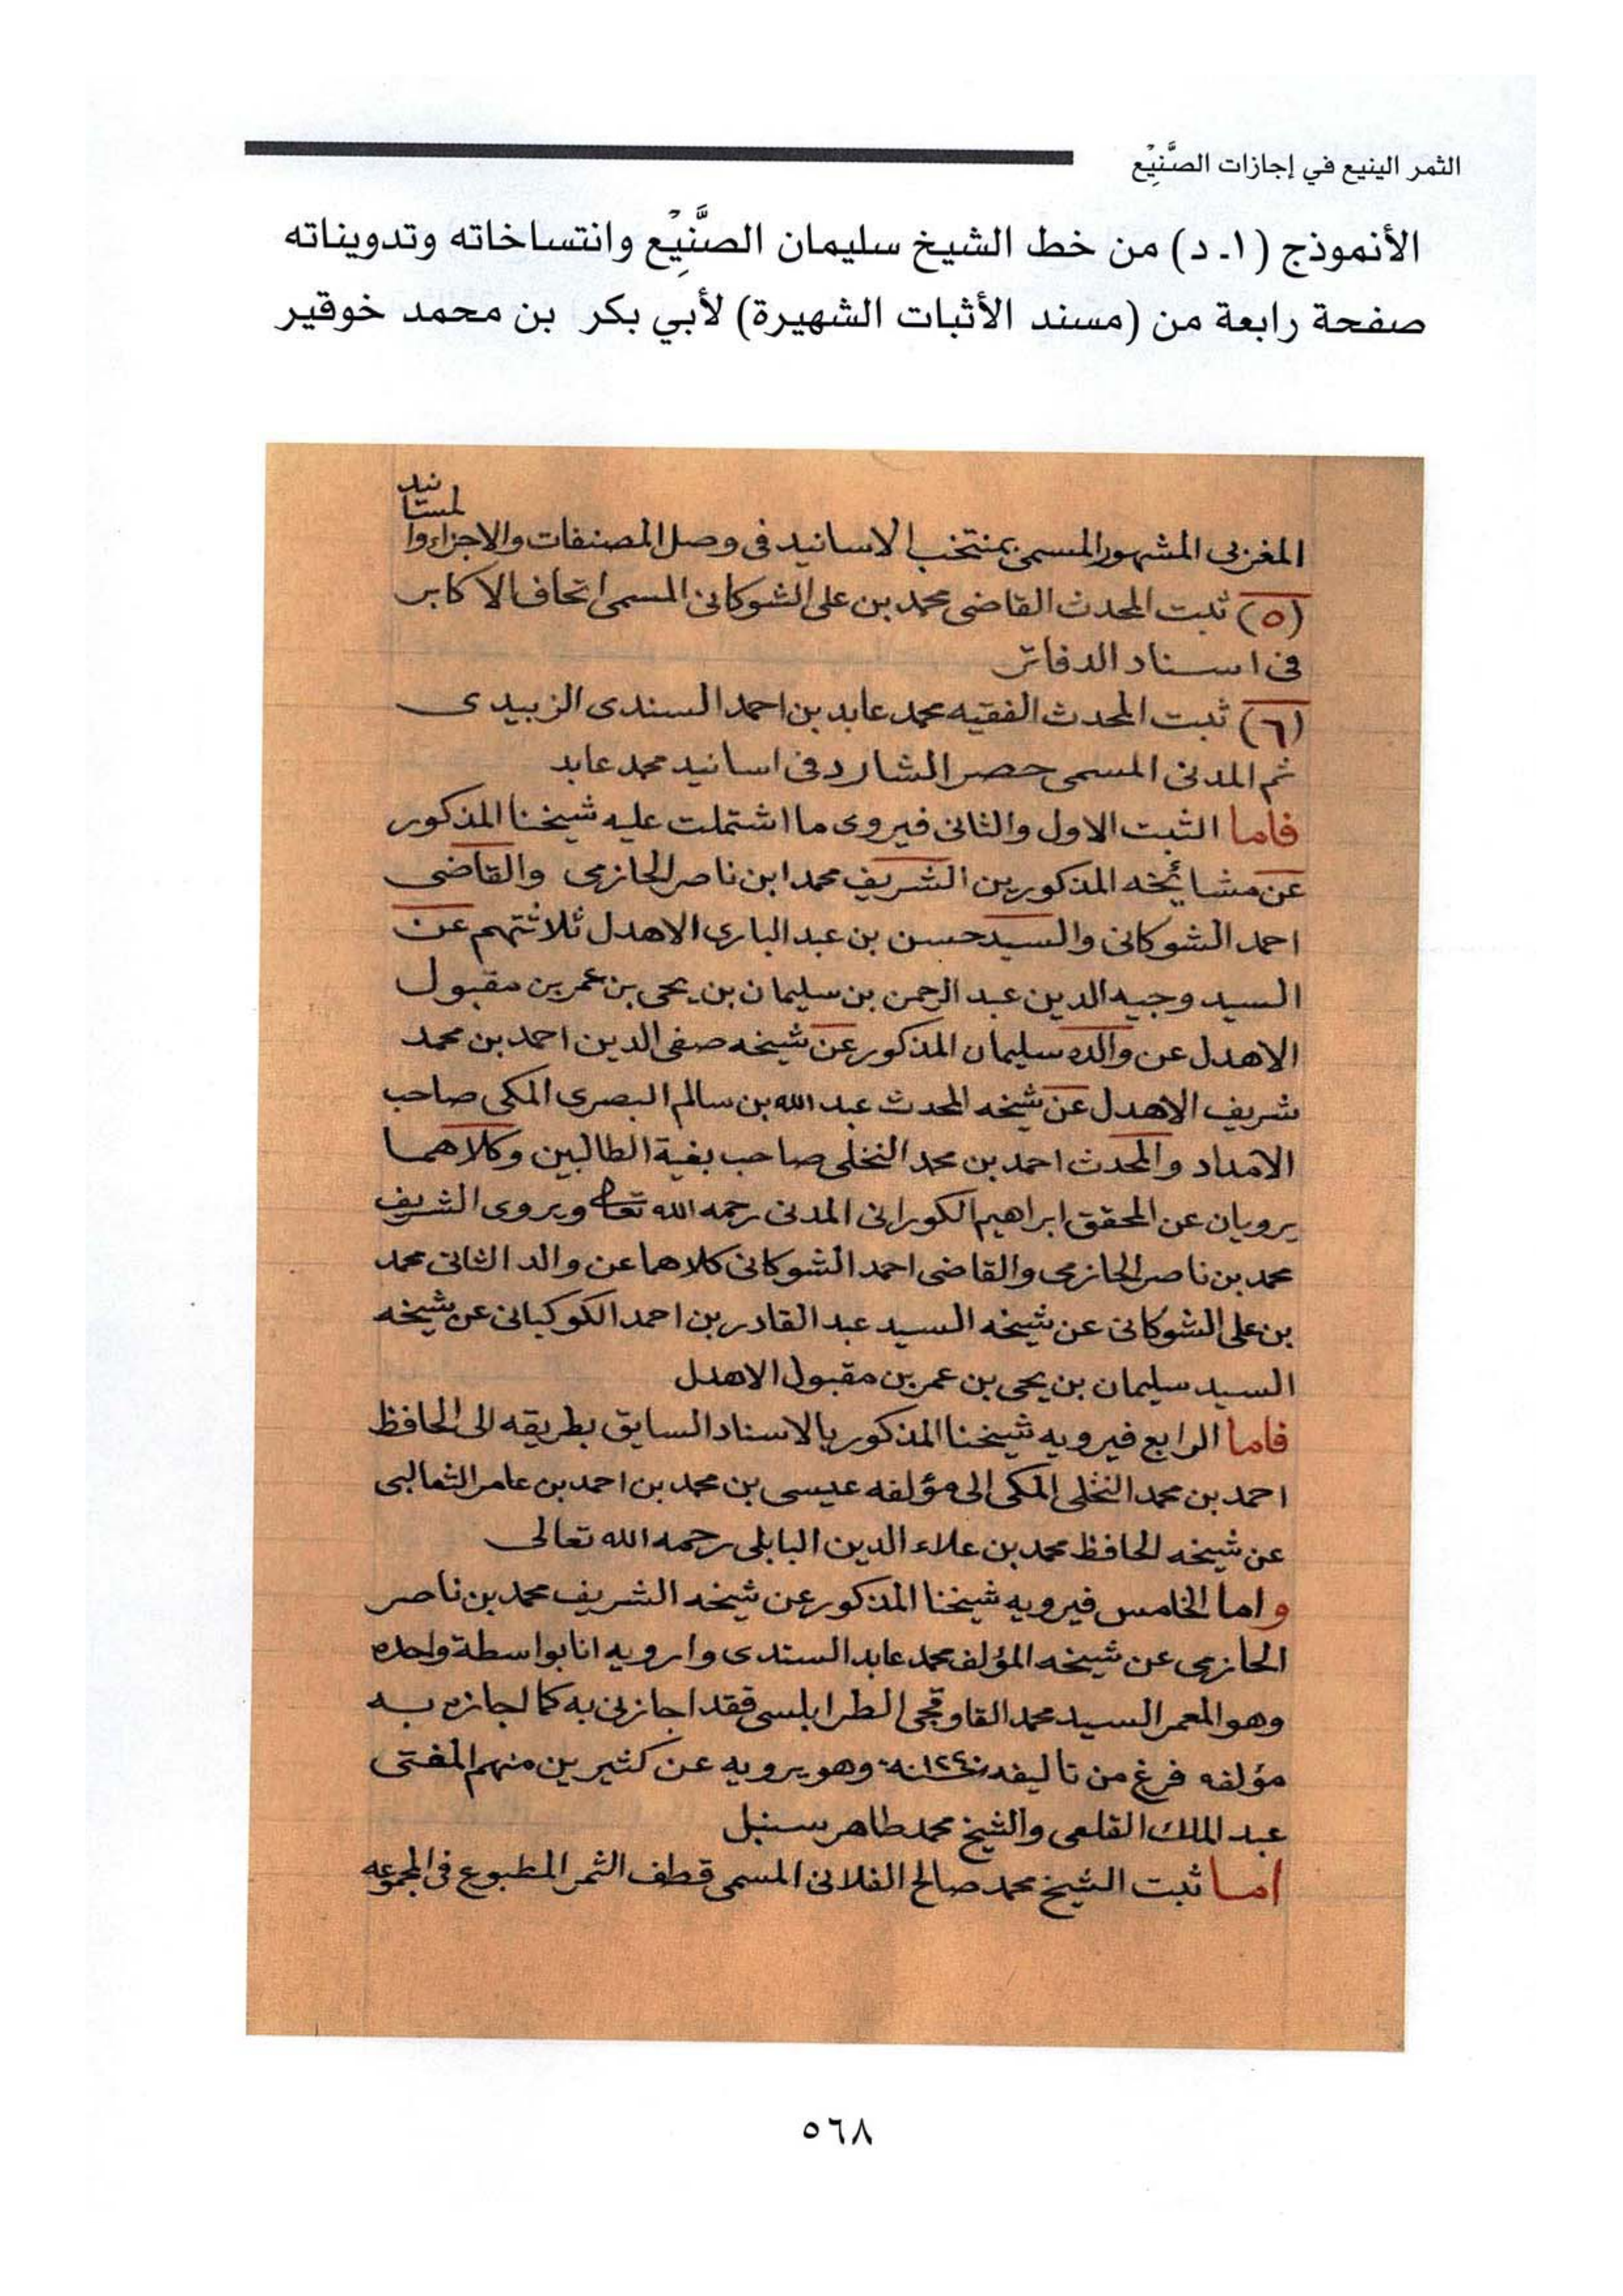 الثمر الينيع في إجازات الصَّنِيْع
الأنموذج (١ـ د) من خط الشيخ سليمان الصَّنِيْع وانتساخاته وتدويناته
صفحة رابعة من (مسند الأثبات الشهيرة) لأبي بكر بن محمد خوقير
المغربى المشهور المسمى بمنتخب الاسانيد فى وصل المصنفات والاجزاء والمسانيد
(٥) ثبت المحدث القاضى محمد بن على الشوكانى المسمى اتحاف الاكابر
فى اسناد الدفاتر
(٦) ثبت المحدث الفقيه محمد عابد بن احمد السندى الزبيدى
ثم المدنى المسمى حصر الشارد فى اسانيد محمد عابد
فاما الثبت الاول والثانى فيروى ما اشتملت عليه شيخنا المذكور
عن مشائخه المذكورين الشريف محمد ابن ناصر الحازمى والقاضى
احمد الشوكانى والسيد حسن بن عبد البارى الاهدل ثلاثتهم عن
السيد وجيه الدين عبد الرحمن بن سليمان بن يحى بن عمر بن مقبول
الاهدل عن والده سليمان المذكور عن شيخه صفى الدين احمد بن محمد
شريف الاهدل عن شيخه المحدث عبد الله بن سالم البصرى المكى صاحب
الامداد والمحدث احمد بن محمد النخلى صاحب بغية الطالبين وكلاهما
يرويان عن المحقق ابراهيم الكورانى المدنى رحمه الله تعالى ويروى الشريف
محمد بن ناصر الحازمى والقاضى احمد الشوكانى كلاهما عن والد الثانى محمد
بن على الشوكانى عن شيخه السيد عبد القادر بن احمد الكوكبانى عن شيخه
السيد سليمان بن يحى بن عمر بن مقبول الاهدل
فاما الرابع فيرويه شيخنا المذكور بالاسناد السابق بطريقه الى الحافظ
احمد بن محمد النخلى المكى الى مؤلفه عيسى بن محمد بن احمد بن عامر الثعالبى
عن شيخه الحافظ محمد بن علاء الدين البابلى رحمه الله تعالى
واما الخامس فيرويه شيخنا المذكور عن شيخه الشريف محمد بن ناصر
الحازمى عن شيخه المؤلف محمد عابد السندى وارويه انا بواسطة واحده
وهو المعمر السيد محمد القاوقجى الطرابلسى فقد اجازنى به كما اجازه به
مؤلفه فرغ من تاليفه سنة ١٢٤٠ وهو يرويه عن كثيرين منهم المفتى
عبد الملك القلعى والشيخ محمد طاهر سنبل
اما ثبت الشيخ محمد صالح الفلانى المسمى قطف الثمر المطبوع فى المجموعه
٥٦٨